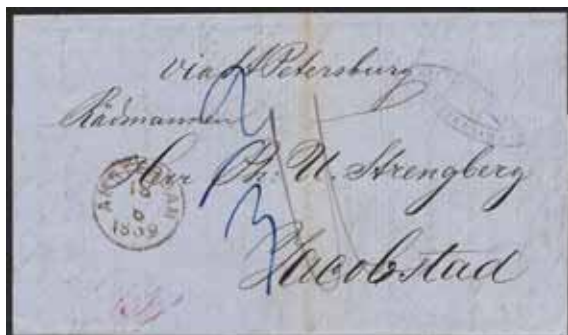 via St Petersburg
Rådmannen
Herr Ph. U. Strengberg
Jacobstad
AMSTERDAM
18
6
1859